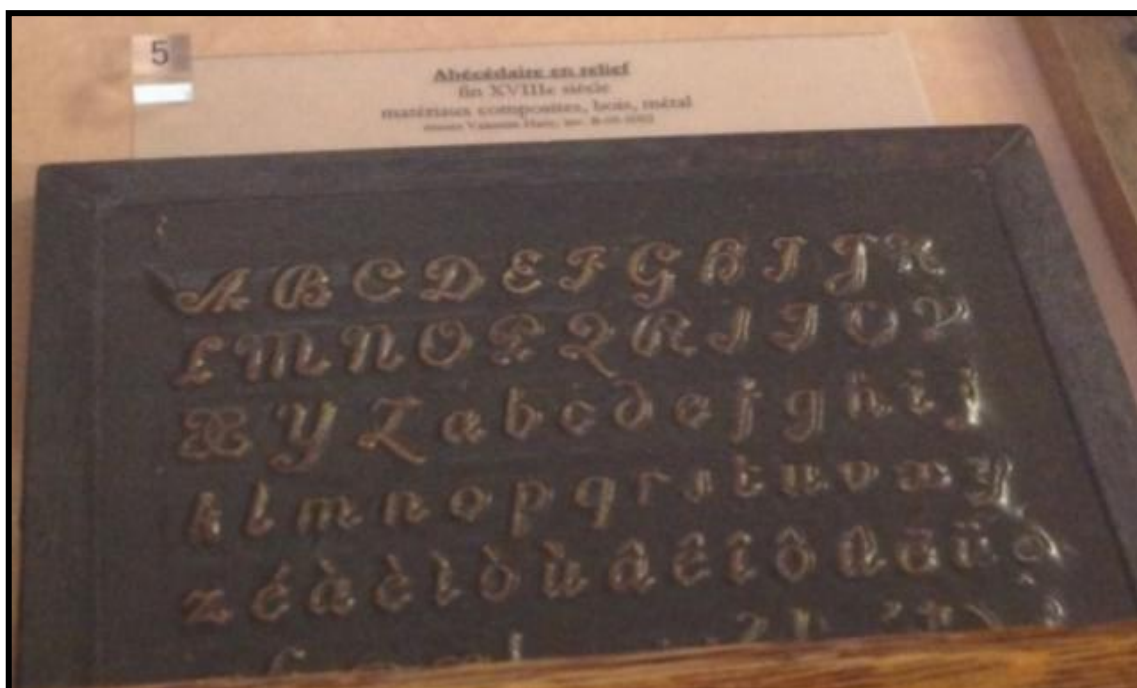 5
Abécédaire en relief
fin XVIIIe siècle
matériaux composites, bois, métal
musée Valentin Haüy, inv.
A B C D E F G H I J K
L M N O P Q R S T U V
X Y Z a b c d e f g h i j
k l m n o p q r s t u v x y
z é à è ì ò ù â ê î ô û ë ï